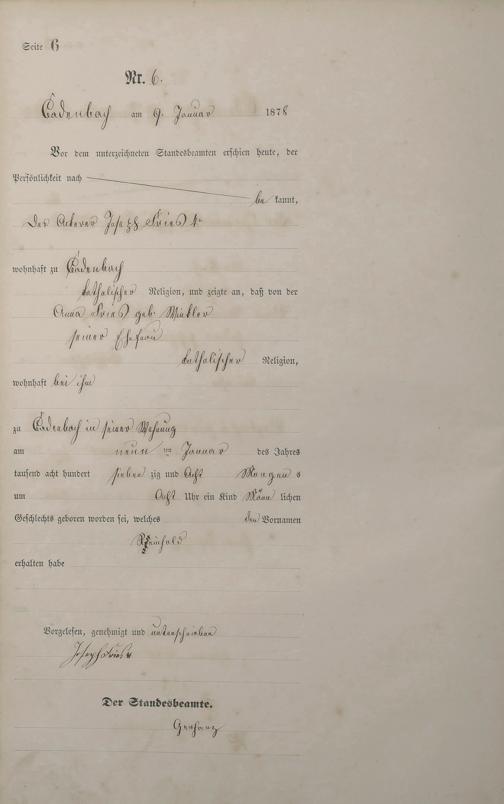 Seite 6
Nr. 6.
Cadenbach am 9. Januar 1878
Vor dem unterzeichneten Standesbeamten erschien heute, der
Persönlichkeit nach
be kannt,
der Ackerer Joseph Fries
wohnhaft zu Cadenbach
katholischer Religion, und zeigte an, daß von der
Anna Fries geb. Winkler
seiner Ehefrau
katholischer Religion,
wohnhaft bei ihm
zu Cadenbach in seiner Wohnung
am neun ten Januar des Jahres
tausend acht hundert sieben zig und Acht Morgen s
um Acht Uhr ein Kind Männ lichen
Geschlechts geboren worden sei, welches den Vornamen
Reinhold
erhalten habe
Vorgelesen, genehmigt und unterschrieben
Joseph Fries
Der Standesbeamte.